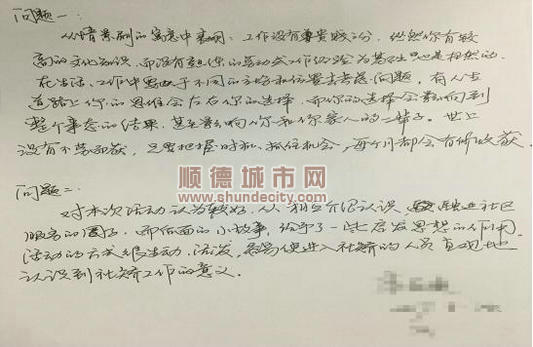 问题一：
从情景剧的寓意中表明：工作没有尊贵贱之分，纵然你有较
高的文化知识，而没有起体的劳动或工作经验为基础也是枉然的。
在生活、工作中要由于不同的立场和位置去考虑问题，有人生
道路上你的思维会左右你的选择，而你的选择会影响到
整个事态的结果，甚至影响你和你家人的一辈子。世上
没有不劳而获，只要把握时机、抓住机会，每个人都会有所收获。
问题二：
对本次活动认为较好，从 介绍认识， 社区
服务的圈子，而后面的小故事，给予了一些启发思想的作用
活动的方式很生动、活泼， 使进入社矫的人员直观地
认识到社矫工作的意义。
顺德城市网
www.shundecity.com